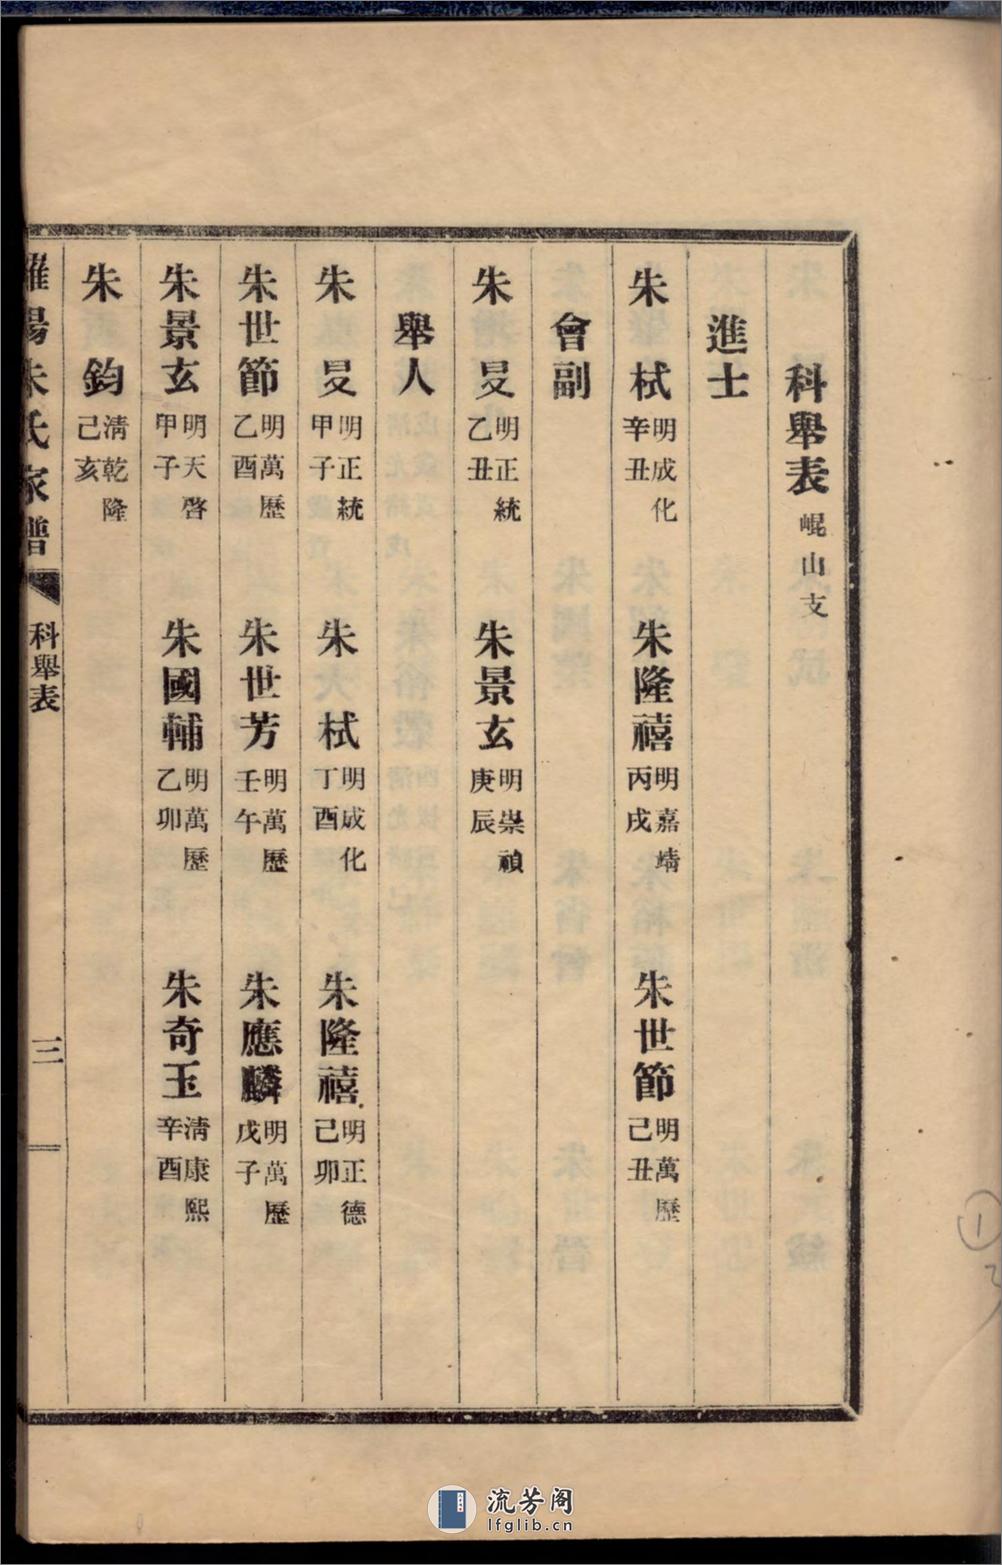 科舉表 崐山支
進士
朱栻 明成化辛丑 朱隆禧 明嘉靖丙戌 朱世節 明萬歷己丑
會副
朱旻 明正統乙丑 朱景玄 明崇禎庚辰
舉人
朱旻 明正統甲子 朱栻 明成化丁酉 朱隆禧 明正德己卯
朱世節 明萬歷乙酉 朱世芳 明萬歷壬午 朱應麟 明萬歷戊子
朱景玄 明天啓甲子 朱國輔 明萬歷乙卯 朱奇玉 淸康熙辛酉
朱鈞 淸乾隆己亥
陽朱氏家譜 科舉表 三
流芳阁
lfglib.cn